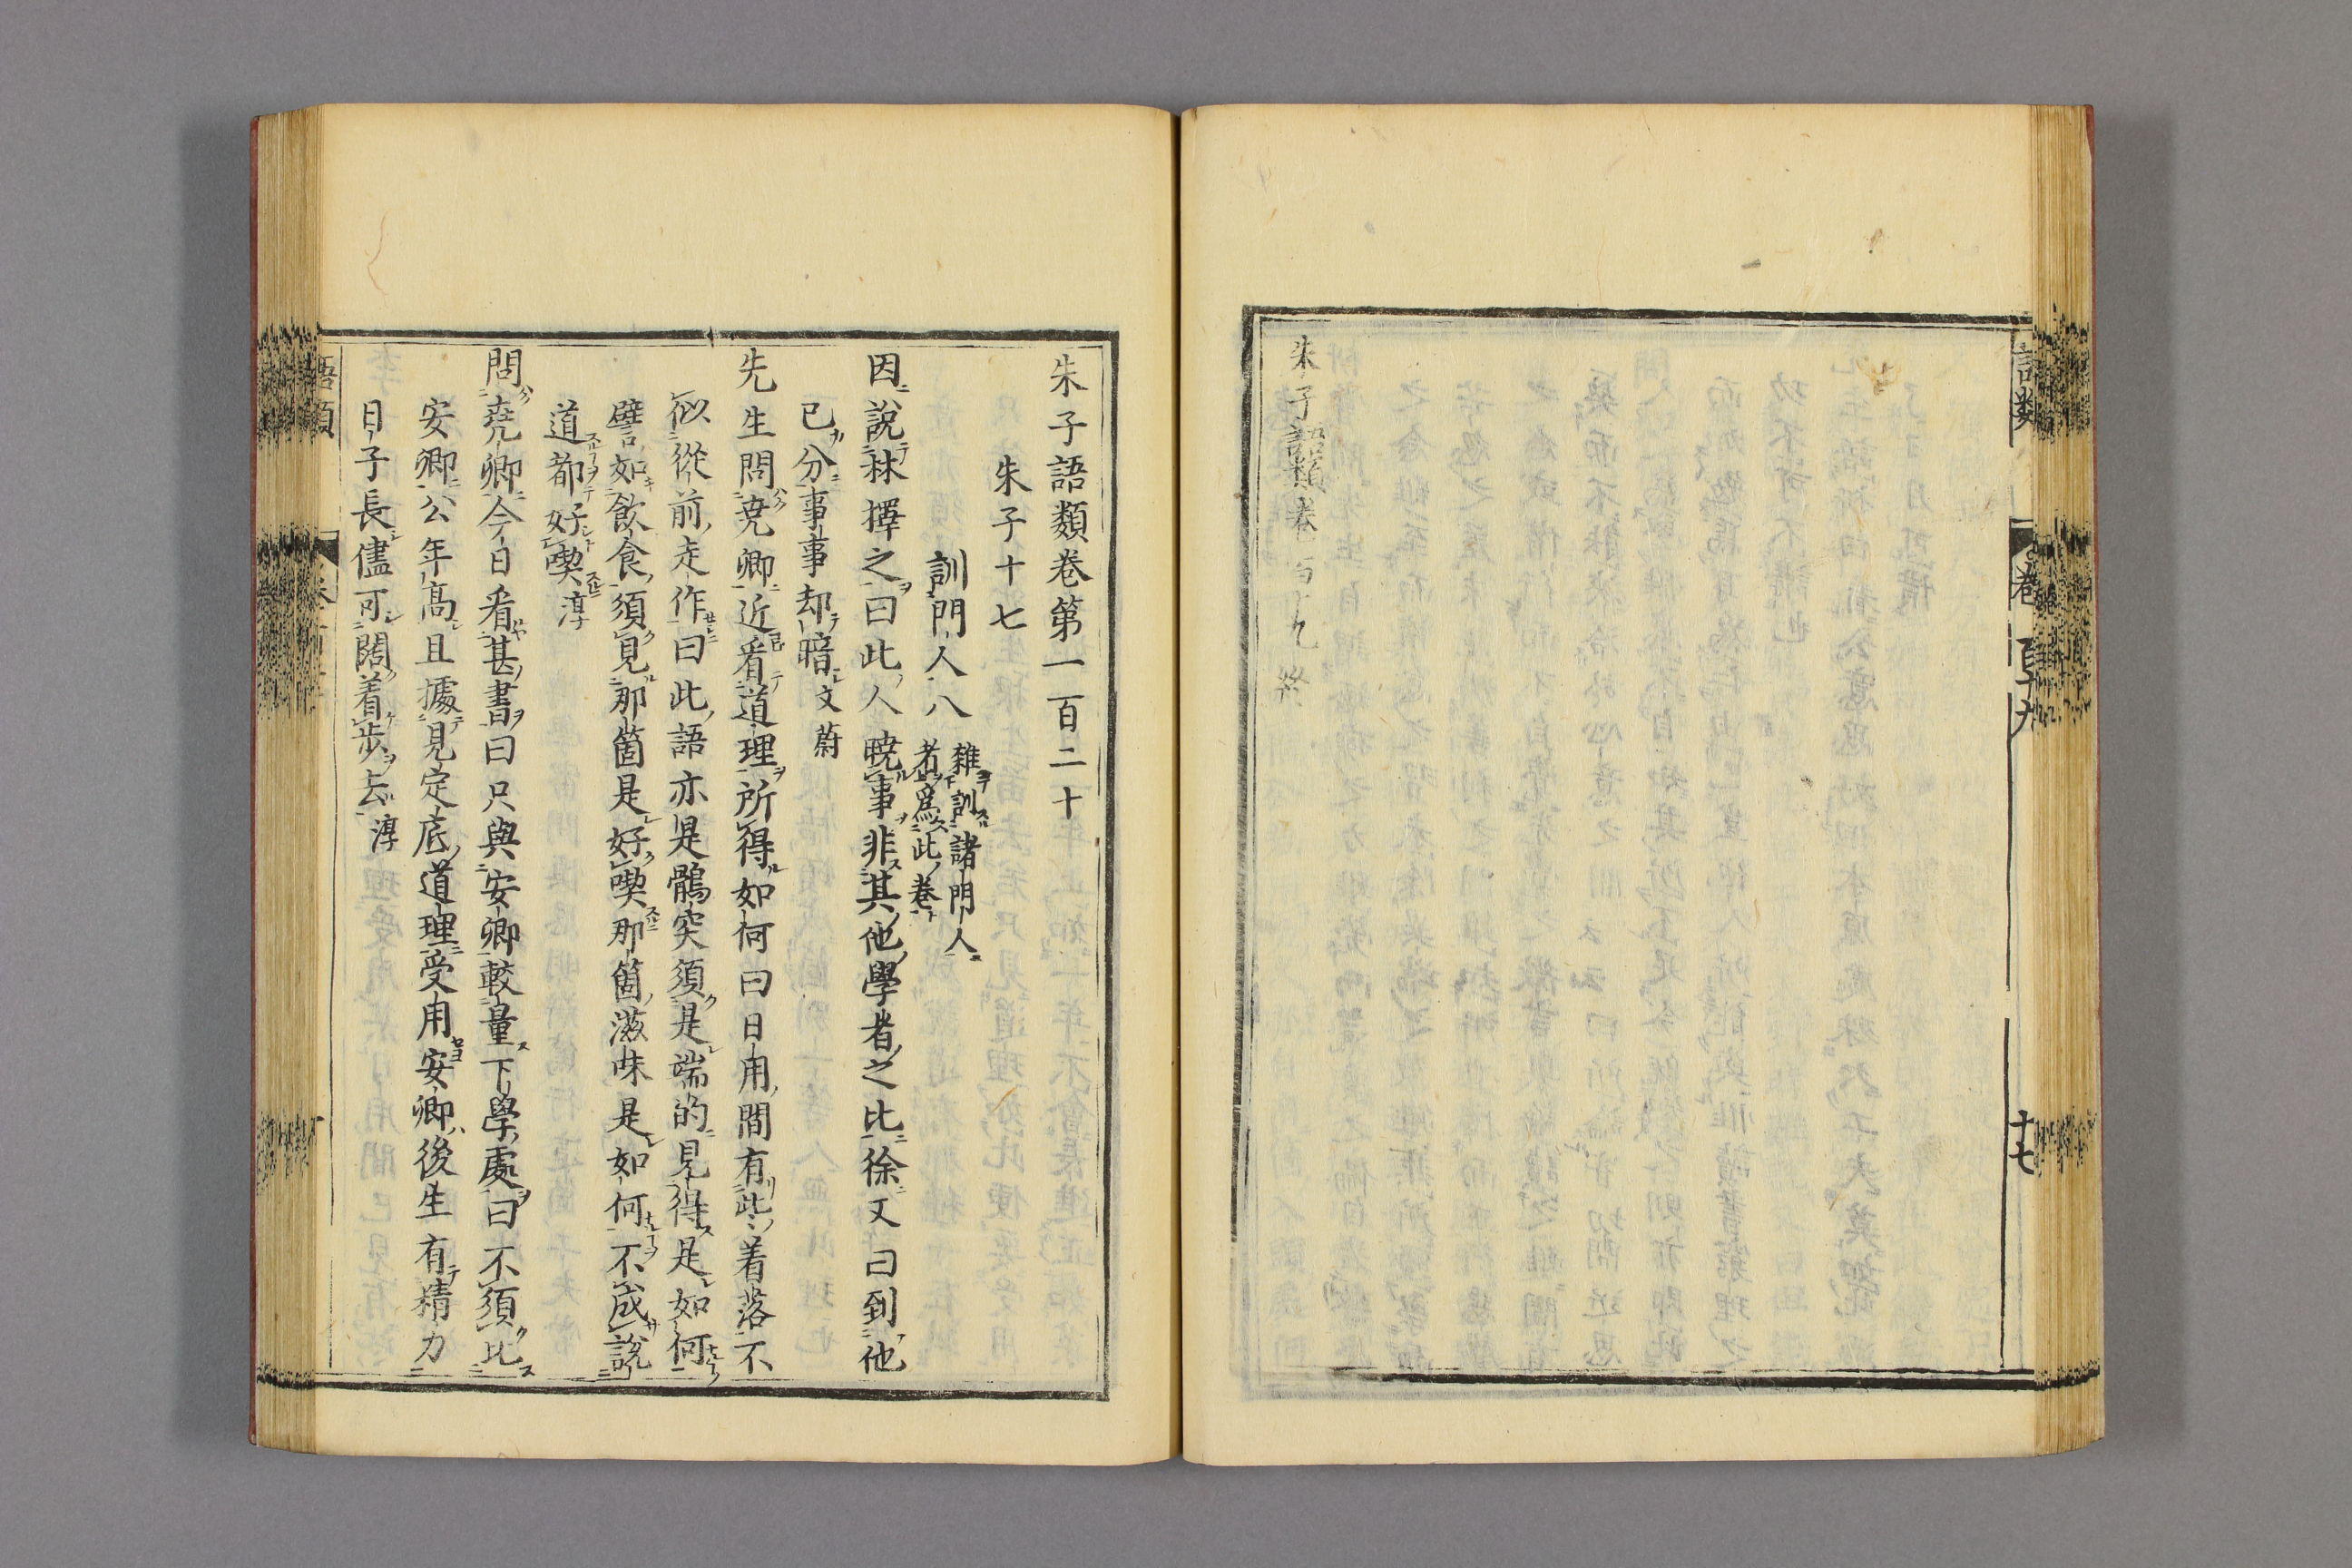 朱子語類卷百十九終
語類
卷百十九
十七
朱子語類卷第一百二十
朱子十七
訓門人八
雜訓諸門人
者爲此卷
因說林擇之曰此人曉事非其他學者之比徐又曰到他
已分事事却暗文蔚
先生問堯卿近看道理所得如何曰日用間有些着落不
似從前走作曰此語亦是鶻突須是端的見得是如何
譬如飲食須見那箇是好喫那箇滋味是如何不成說
道都好喫淳
問堯卿今日看甚書曰只與安卿較量下學處曰不須比
安卿公年高且據見定底道理受用安卿後生有精力
日子長儘可闊着步去淳
語類